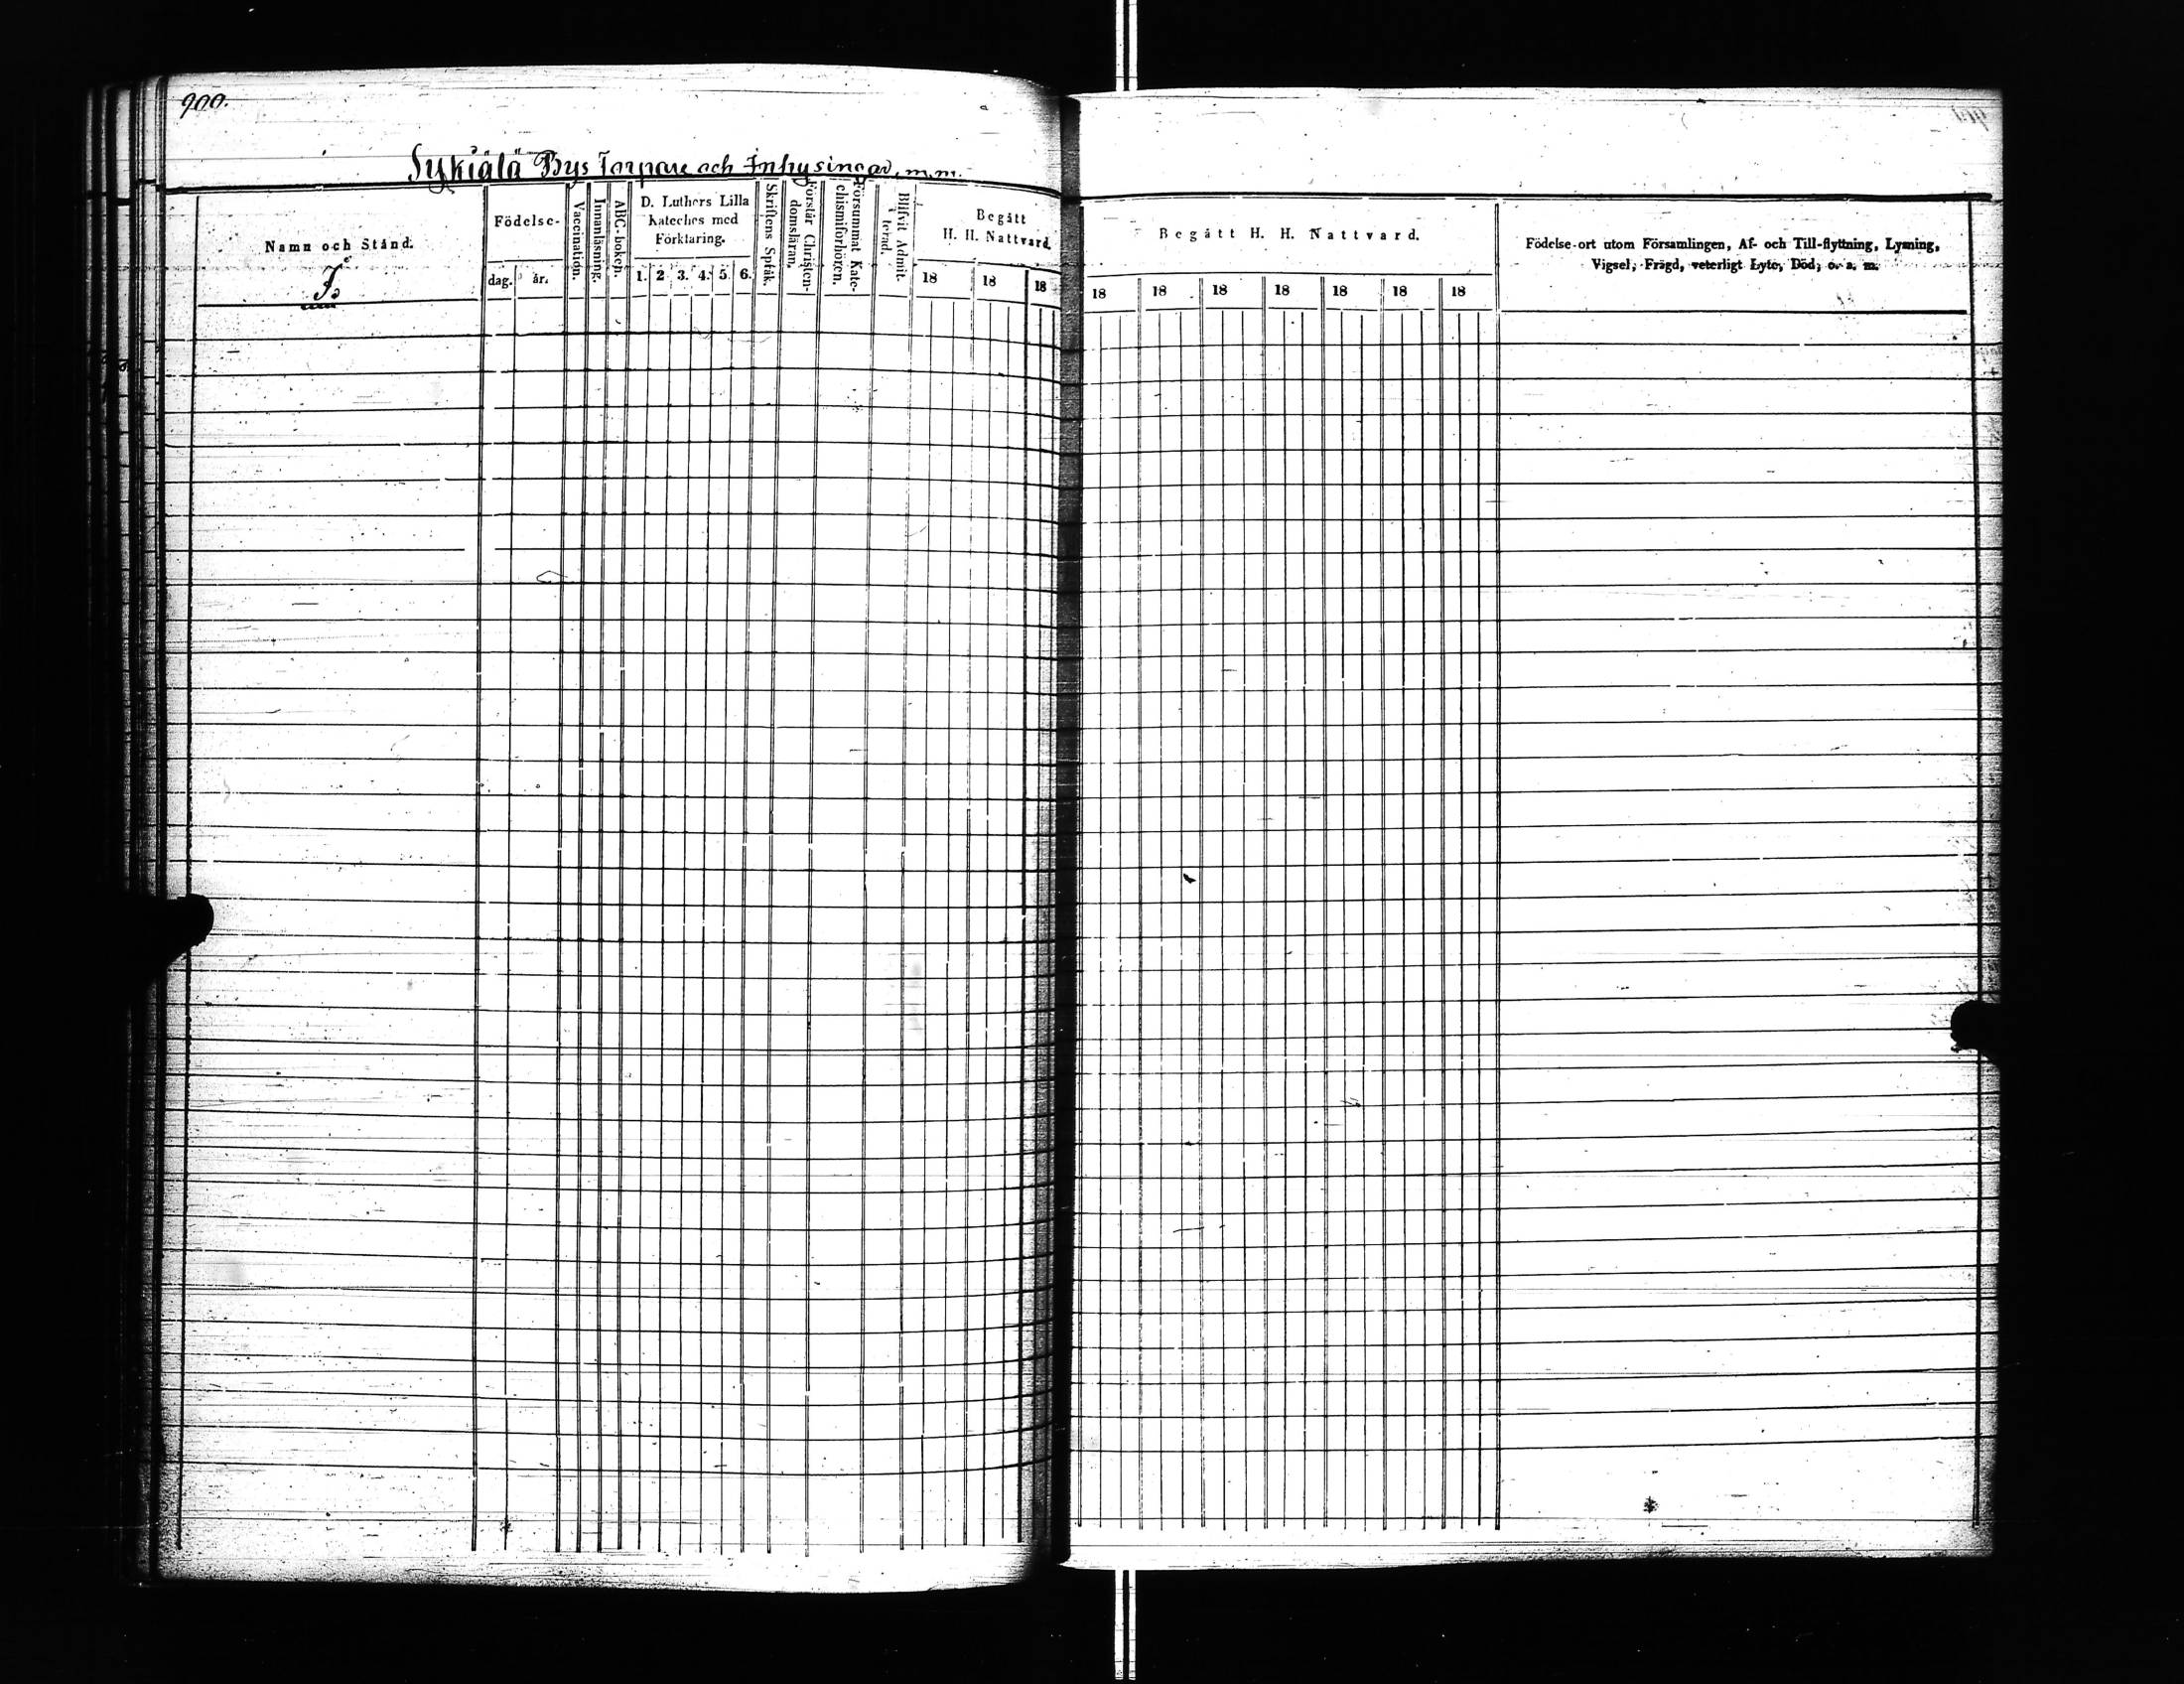 900.
Sykiälä Bys Torpare och Inhysingar, m.m.
Namn och Stånd.
Födelse-
dag.
år.
Vaccination.
Innanläsning.
ABC-boken.
D. Luthers Lilla
Kateches med
Förklaring.
1. 2 3. 4. 5. 6.
Skriftens Språk.
Förstår Christen-
domsläran.
Försummat Kate-
chismiförhören.
Blifvit Admit-
terad.
Begått
H. H. Nattvard.
18 18 18
Begått H. H. Nattvard.
18 18 18 18 18 18 18
Födelse-ort utom Församlingen, Af- och Till-flyttning, Lysning,
Vigsel, Frägd, veterligt Lyte, Död, o. a. m.